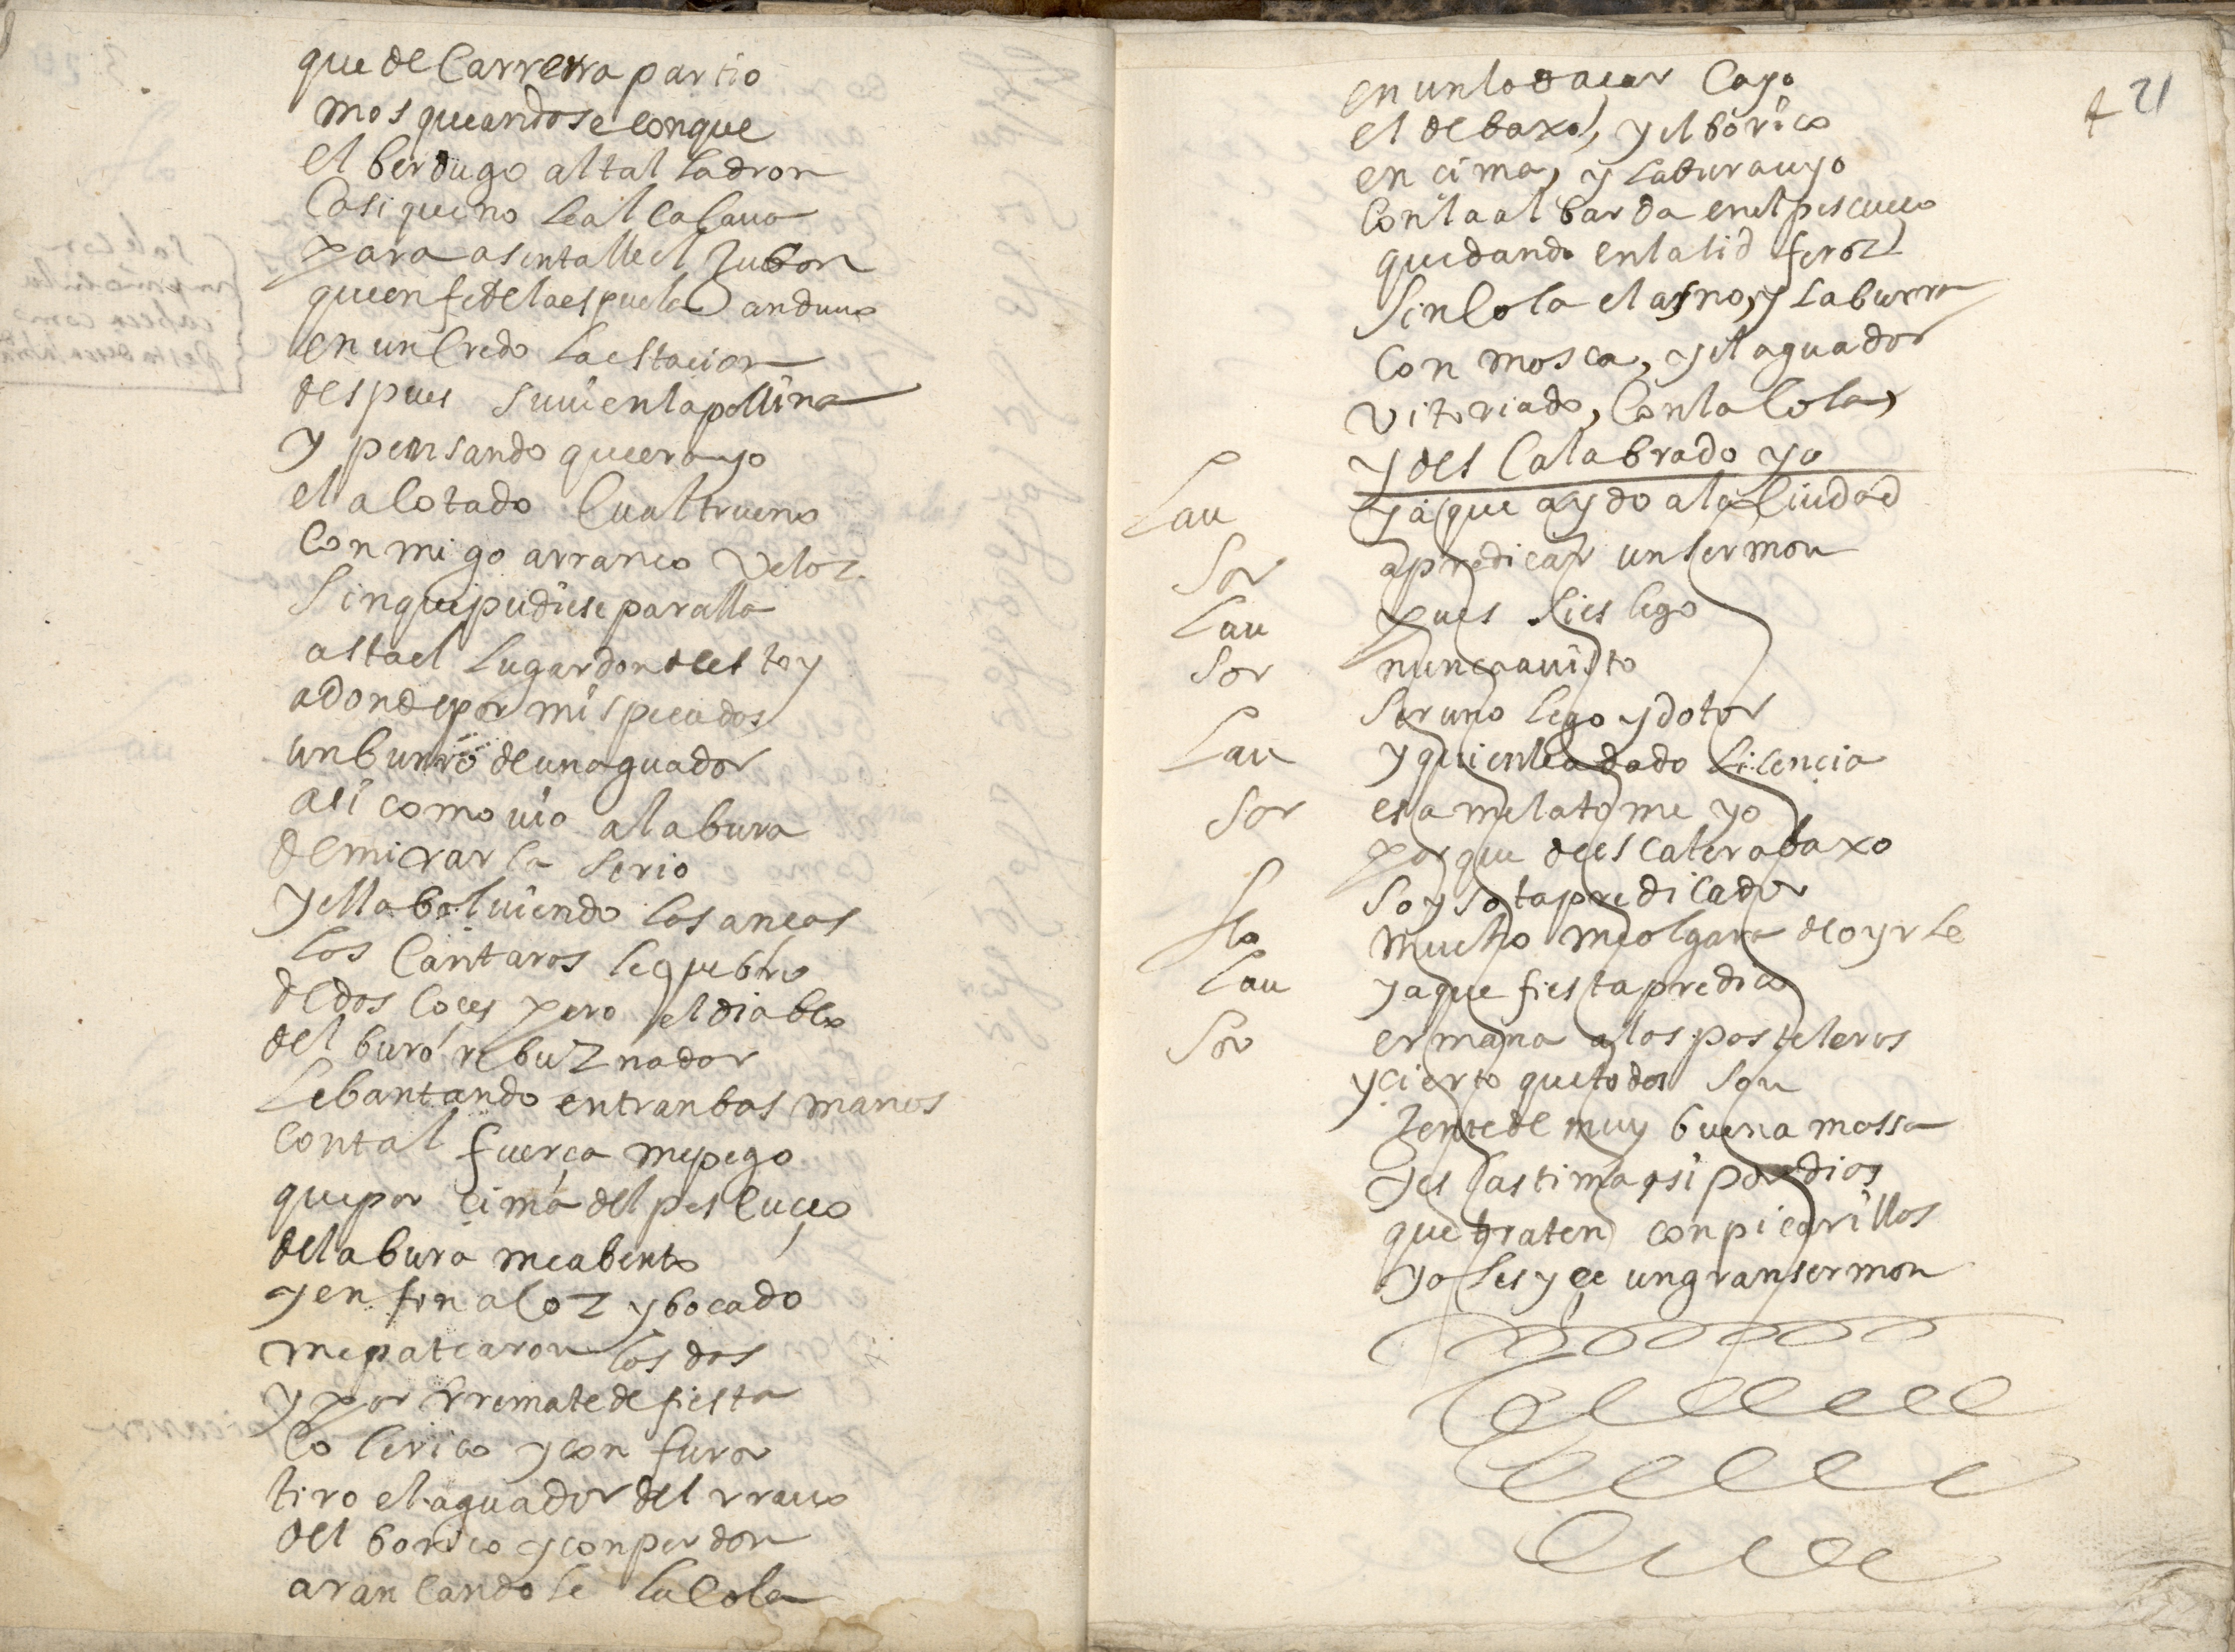 que de Carrerra partio
mosqueandose conque
el berdugo al tal ladron
Casi que no le alcasaua
para asentalle el Jubon
que en fe de la espuela anduuo
en un Credo la estacion
despues suui en la pollina
y pensando que era yo
el acotado Cual trueno
Conmigo arranco Veloz
sin que pudiese paralla
asta el lugar donde estoy
adonde por mis pecados
un burro de un aguador
asi como uio a la bura
de mirarla se rio
y ella boluiendo las ancas
los Cantaros le quebro
de dos coces pero el diablo
del buro rebuznador
lebantando entranbas manos
con tal fuerça me pego
que por cima del pescueço
de la bura me abento
y en fin a coz y bocado
me patearon los dos
y por rremate de fiesta
Colerico y con furor
tiro el aguador del rrauo
del borrico y con perdon
arancandole la Cola
4 21
en un lodaçar Cayo
el debaxo, y el borico
encima, y la bura uyo
Con la albarda en el pescueço
quedando en la lid feroz
sin Cola el asno, y la burra
Con mosca, y el aguador
Vitoriado, Con la Cola,
y descalabrado yo
Lau ya que a ydo a la Ciudad
Sor a predicar un sermon
Lau pues si es lego
Sor nunca a uisto
ser uno lego y dotor
Lau y quien le a dado licencia
Sor esa me la tome yo
porque de escalera abaxo
soy sotapredicador
Flo mucho me olgara de oyrle
Lau ya que fiesta predico
Sor ermana a los pasteleros
y cierto que todos son
Jente de muy buena massa
y es lastima asi por dios
que traten con picarillos
yo les yçe un gran sermon